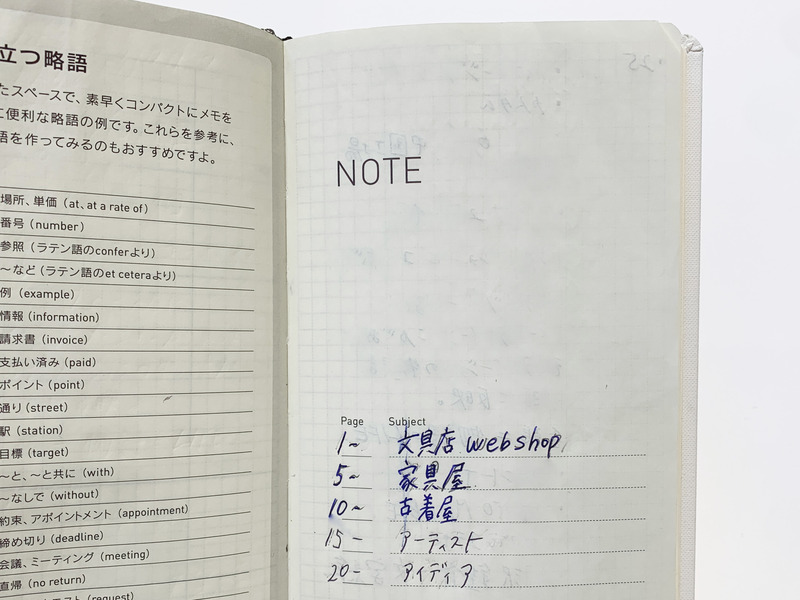 立つ略語
たスペースで、素早くコンパクトにメモを
に便利な略語の例です。これらを参考に、
語を作ってみるのもおすすめですよ。
場所、単価 (at, at a rate of)
番号 (number)
参照 (ラテン語のconferより)
〜など (ラテン語のet ceteraより)
例 (example)
情報 (information)
請求書 (invoice)
支払い済み (paid)
ポイント (point)
通り (street)
駅 (station)
目標 (target)
〜と、〜と共に (with)
〜なしで (without)
約束、アポイントメント (appointment)
締め切り (deadline)
会議、ミーティング (meeting)
直帰 (no return)
(request)
NOTE
Page Subject
1~ 文具店 webshop
5~ 家具屋
10~ 古着屋
15- アーティスト
20- アイディア